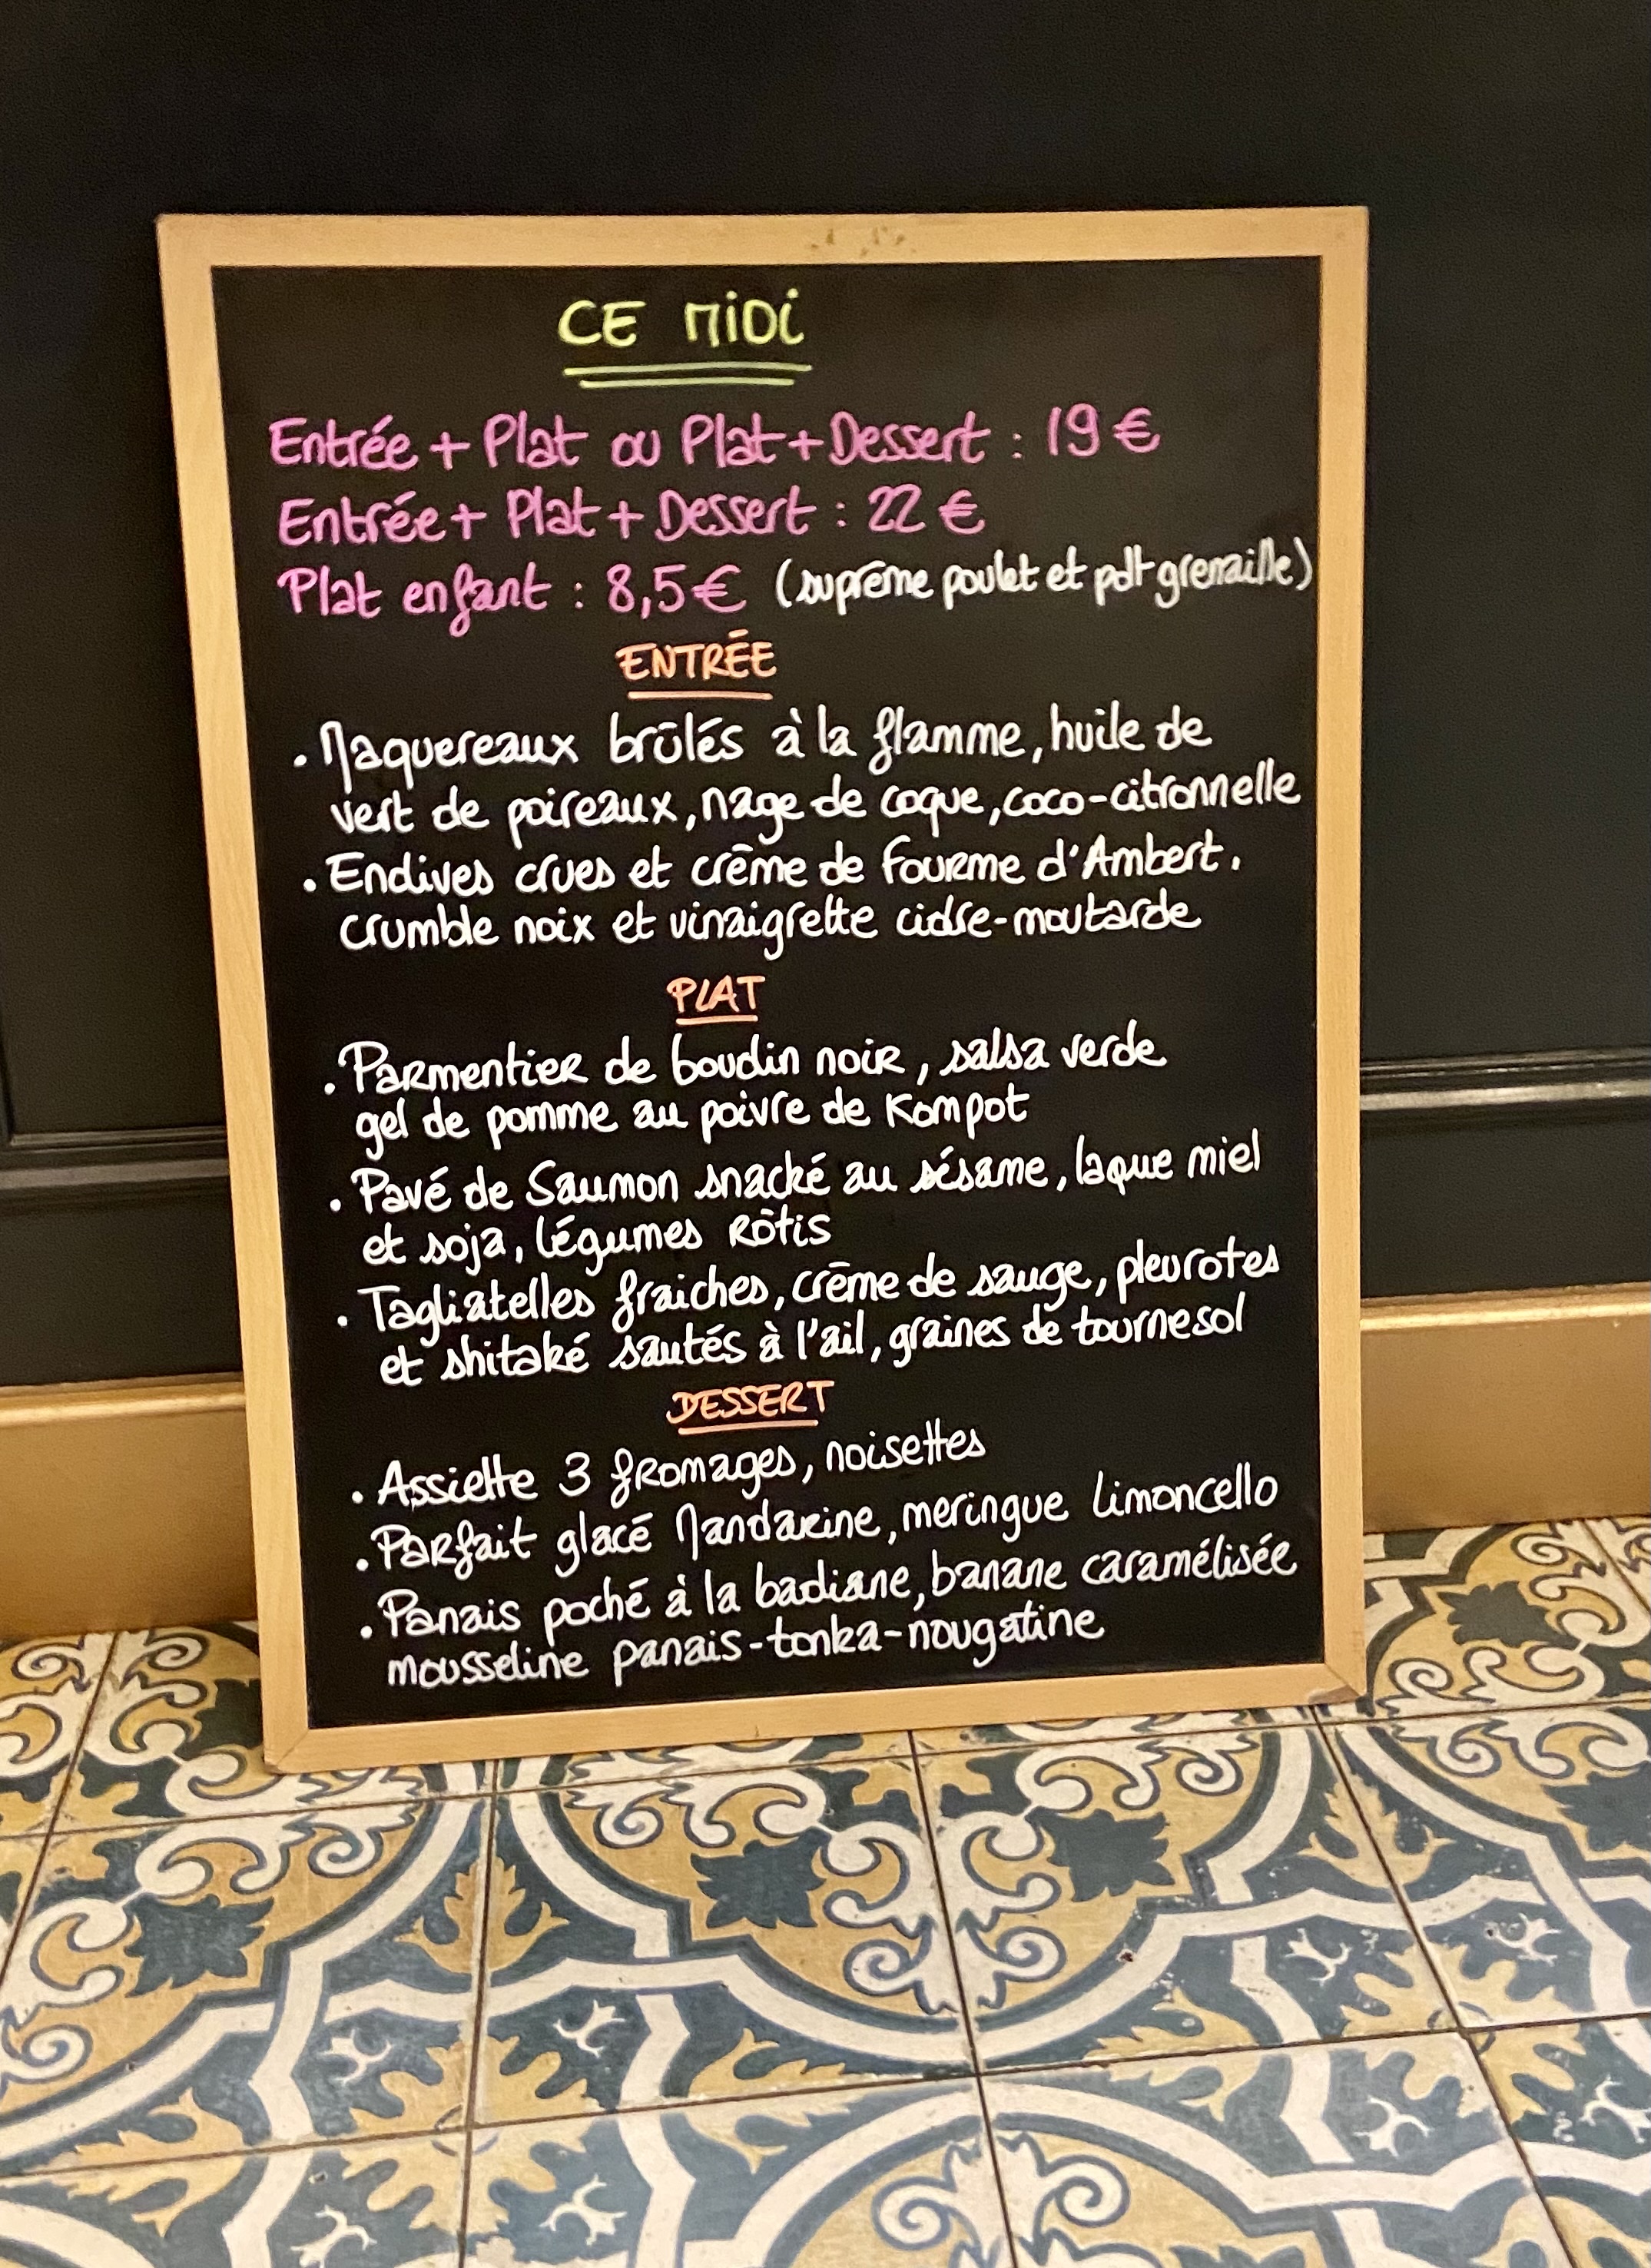 CE MIDI
Entrée + Plat ou Plat + Dessert : 19 €
Entrée + Plat + Dessert : 22 €
Plat enfant : 8,5 € (suprême poulet et pdt grenaille)
ENTRÉE
. Maquereaux brûlés à la flamme, huile de
vert de poireaux, nage de coque, coco-citronnelle
. Endives crues et crème de fourme d'Ambert.
crumble noix et vinaigrette cidre-moutarde
PLAT
. Parmentier de boudin noir, salsa verde
gel de pomme au poivre de Kompot
. Pavé de Saumon snacké au sésame, laque miel
et soja, légumes rôtis
. Tagliatelles fraiches, crème de sauge, pleurotes
et shitaké sautés à l'ail, graines de tournesol
DESSERT
. Assiette 3 fromages, noisettes
. Parfait glacé Mandarine, meringue limoncello
. Panais poché à la badiane, banane caramélisée
mousseline panais-tonka-nougatine